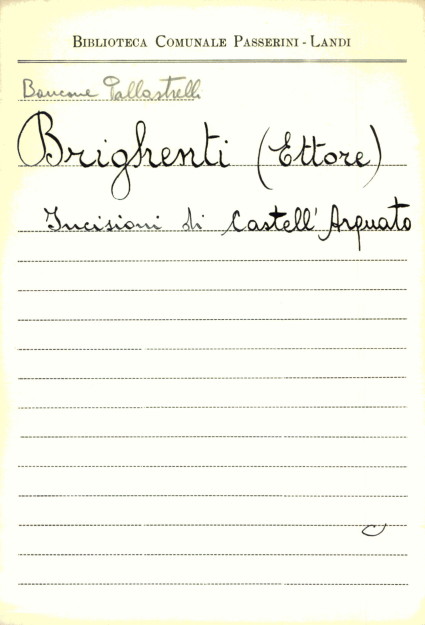 BIBLIOTECA COMUNALE PASSERINI - LANDI
Bancone Pallastrelli
Brighenti (Ettore)
Incisioni di Castell'Arquato